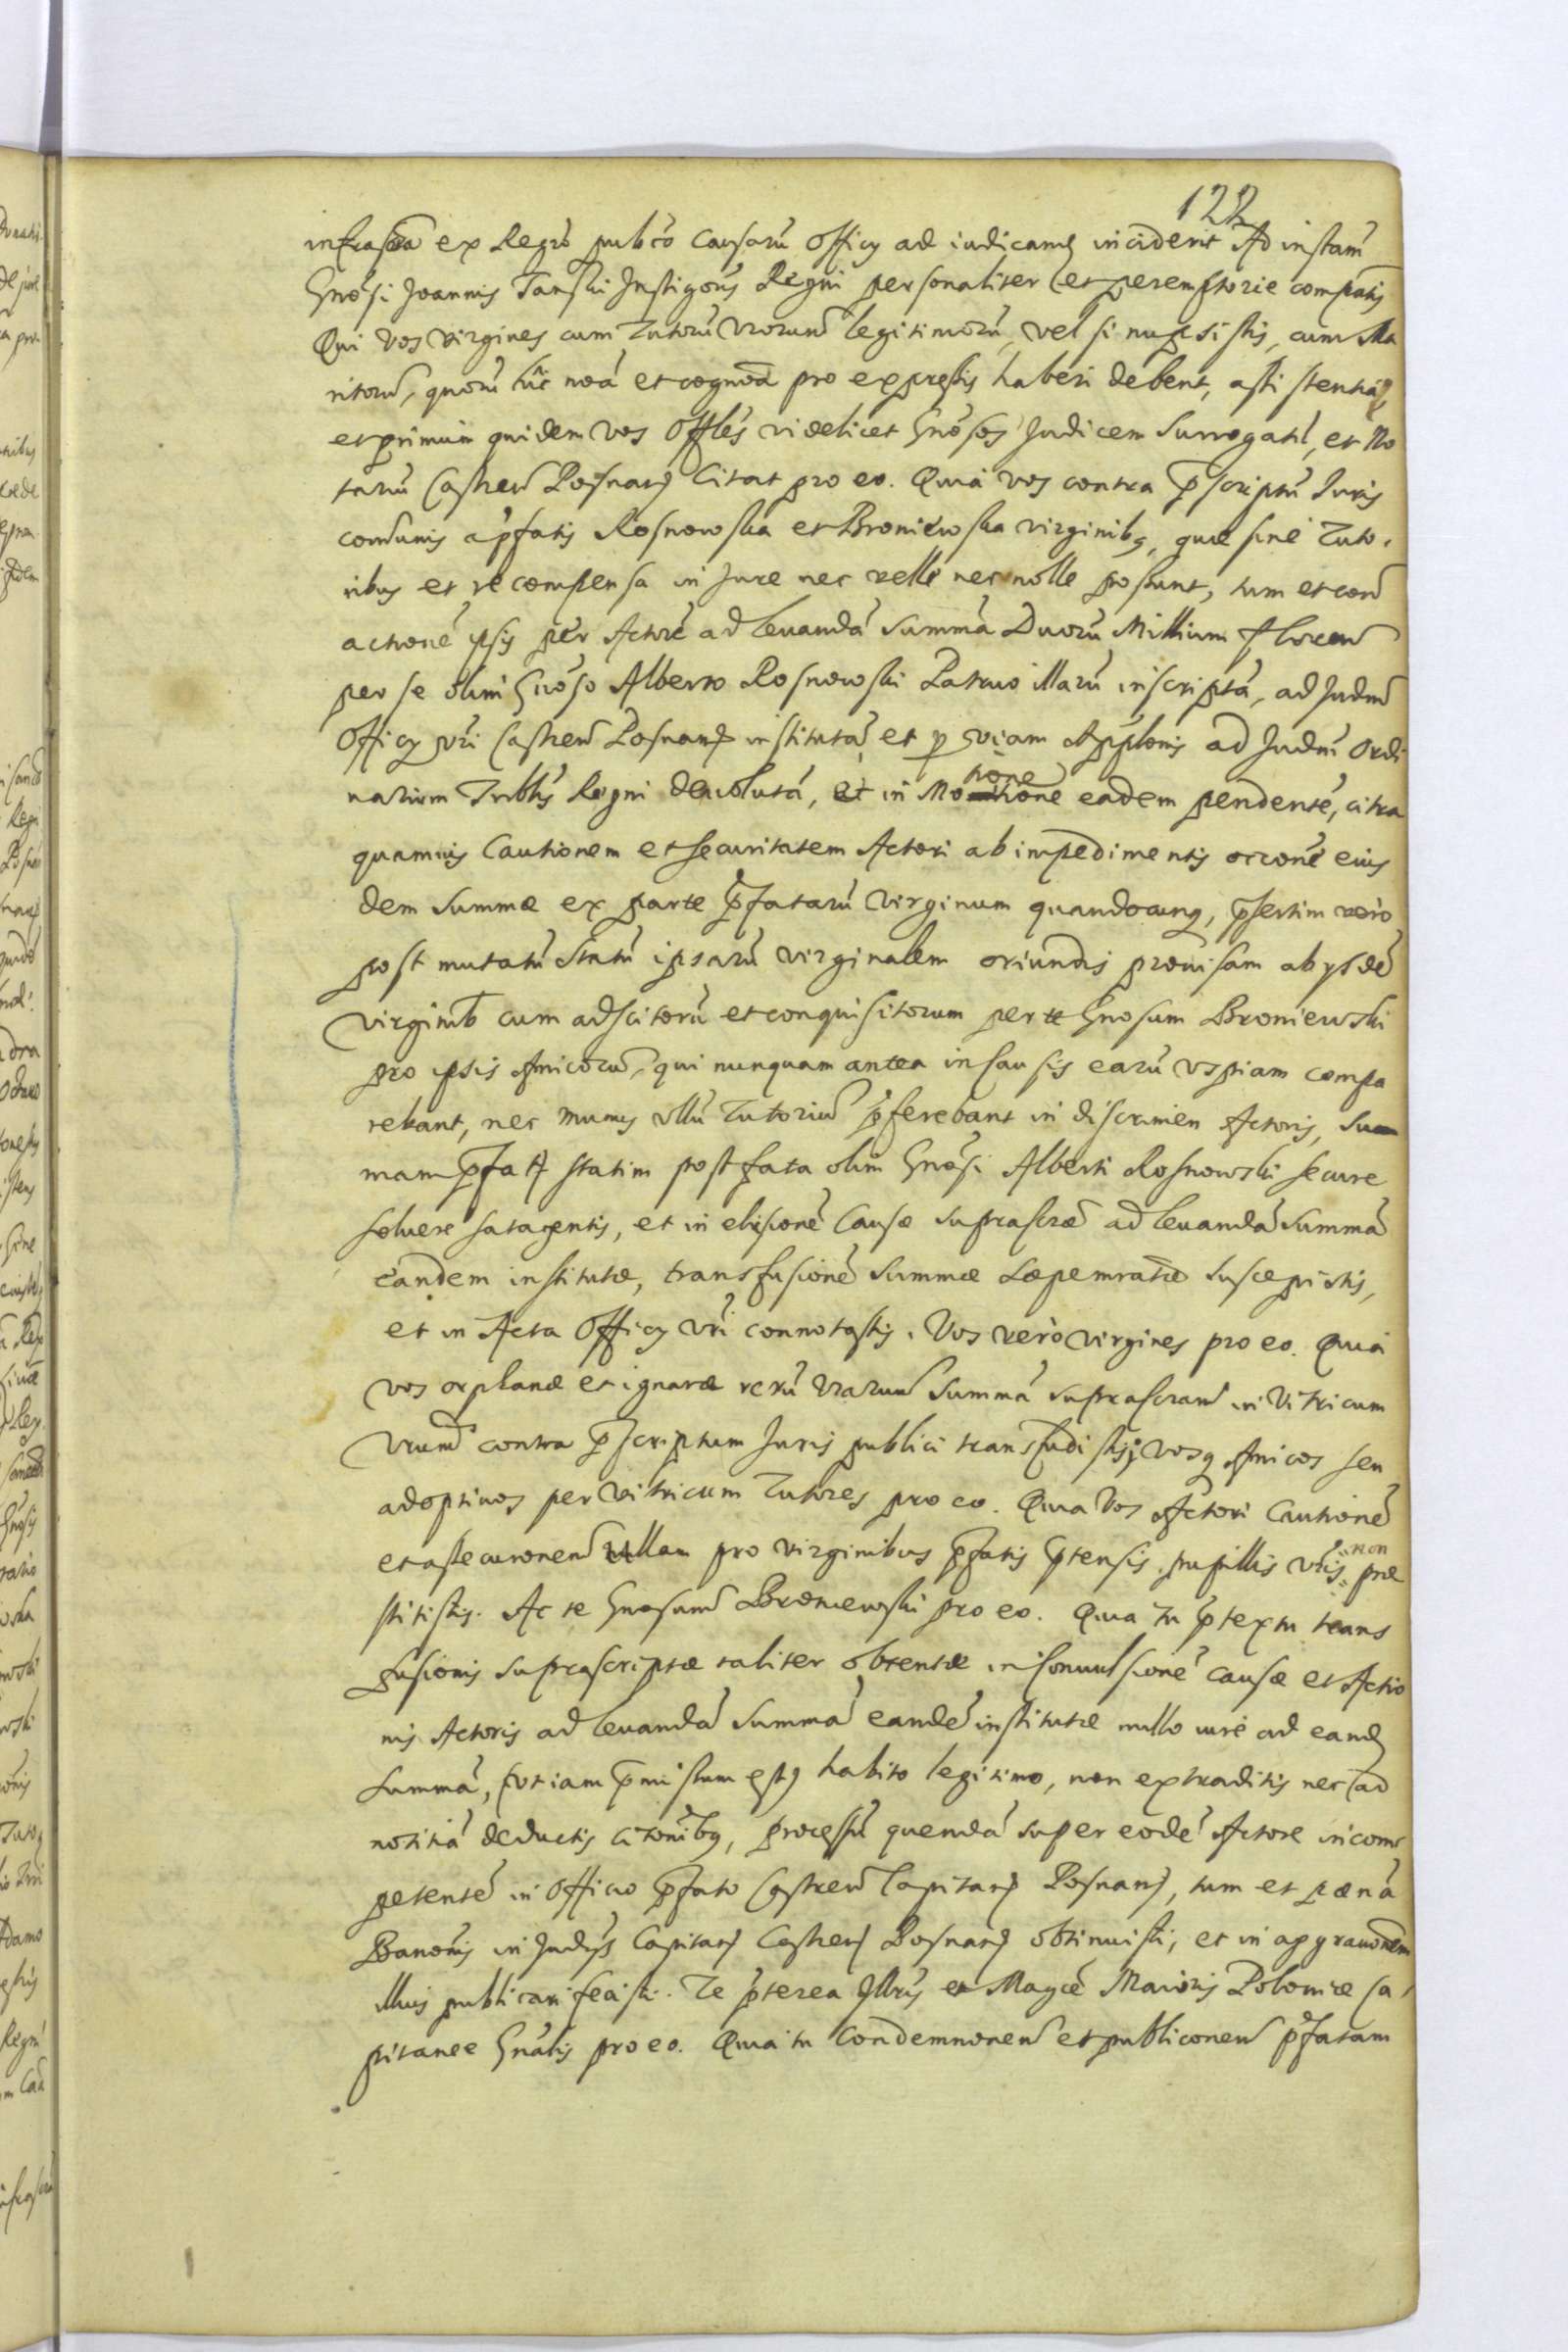 122
infrascra ex Regro publco Causarũ Officy ad iudicamd inciderit Ad instam
Gnosi Joannis Tanski Instigoris Regni personaliter et peremptorie compatis
Qui vos virgines cum Tutorũ vrorum legitimorũ, vel si nupsistis, cum Ma
ritorũ, quorũ hic noa et cognoa pro expressis haberi debent, assistentia
et primum quidem vos Offles videlicet Gnosos Judicem Surrogatũ, et No
tariũ Castren Posnan Citat pro eo. Quia vos contra pscriptũ Juris
comunis a pfatis Rosnowska et Broniewska virginibq, quæ sine Tuto-
ribus et recompensa in Jure nec velle nec nolle possunt, tum et
actionẽ ipsis per Actorẽ ad levandã Summã Duorũ Millium Floren
per se olim Gnoso Alberto Rosnowski Patruo illarũ inscriptã, ad Judm
Officy vri Castren Posnan institutã et p viam Applonis ad Judm Ordi
narium Triblis Regni devolutã, et in Motione eadem pendente, citra
tione
quamvis Cautionem et securitatem Actori ab impedimentis orcone eius
dem Summæ ex parte pfatarũ Virginum quandocunq, psertim vero
post mutatũ Statũ ipsarũ virginalem oriundis provisam ab ysdẽ
Virginib cum adscitorũ et conquisitorum per te Gnosum Broniewski
pro ipsis Amicorũ, qui nunquam antea in Causis earũ uspiam compa
rebant, nec munus ullũ Tutoriũ pferebant in discrimen Actoris, Sum
mam pfat statim post fata olim Gnosi Alberti Rosnowski secure
solvere satagentis, et in elisionẽ Causæ suprascræ ad levandã Summã
eandem institutæ, transfusionẽ Summæ sæpemratæ suscepistis,
et in Acta Officy vri connotastis. Vos vero virgines pro eo. Quia
vos orphanæ et ignaræ rerũ vrarum Summã suprascram in Vitricum
vrum contra pscriptum Juris publici transfudistis, vosq Amicos seu
adoptivos per Vitricum Tutores pro eo. Quia Vos Actori Cautionẽ
et assecuronem ullam pro virginibus pfatis ptensis pupillis vris non præ
stitistis. Ac te Gnosum Broniewski pro eo. Quia tu ptextu trans
fusionis suprascriptæ taliter obtentæ in Convulsionẽ causæ et Actio
nis Actoris ad levandã Summã eandẽ institutæ nullo iure ad eand
Summã, (ut iam pmissum est) habito legitimo, non extraditis nec ad
notitiã deductis citonibq, processũ quendã super eodẽ Actore incom
petentẽ in Officio pfato Castren Capitan Posnan, tum et pænã
Banonis in Judys Capitan Castren Posnan obtinuisti, et in aggravonem
illius publicari fecisti. Te pterea Illris et Magce Maioris Poloniæ Ca-
pitanee Gnalis pro eo. Quia tu Condemnonem et publiconem pfatam